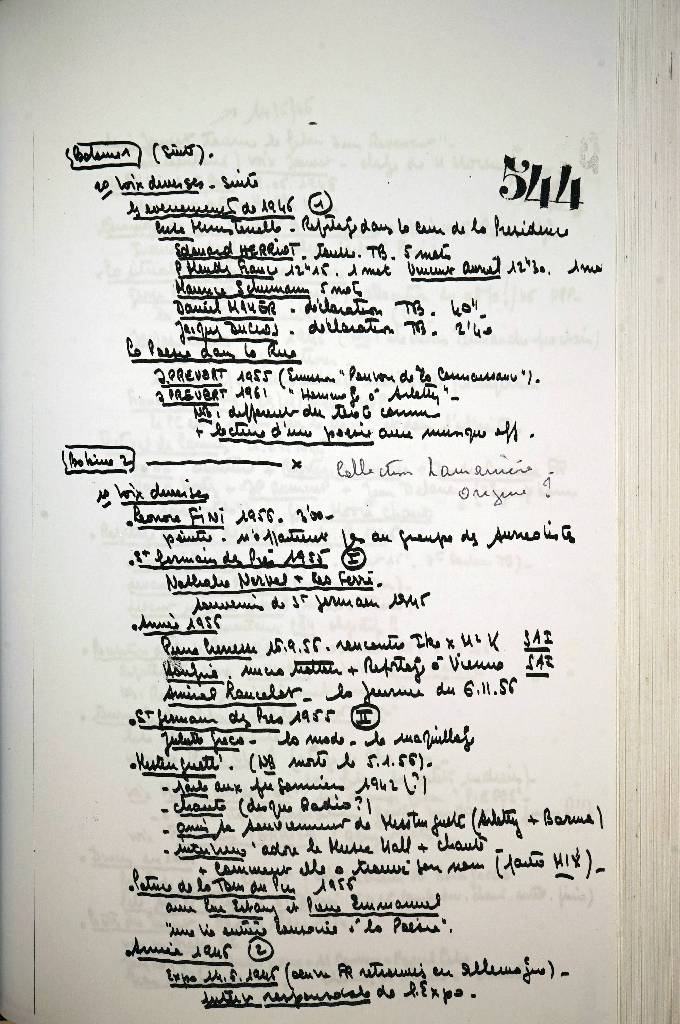 Bobine 1 (suite).
544
1º Voix diverses - suite
Evenements de 1946 1
Reportage dans la cour de la Presidence
Edouard HERRIOT. TB. 5 mots
P Mendes France 12"15. 1 mot Vincent Auriol 12"30. 1 mo
Maurice Schumann 5 mots
Daniel MAYER. déclaration TB. 40".
Jacques DUCLOS. déclaration TB. 2'40
La Poesie dans la Rue
J. PREVERT 1955 (Emission "Pouvoir de la Connaissance").
J PREVERT 1961 "Hommage à Arletty"-
NB: different du texte connu
+ lecture d'une poesie avec musique off.
Bobine 2 x Collection Lamarinière
Origine ?
1º Voix diverses
. Leonore FINI 1956. 3'00-
peintre. n'appartient pas au groupe des surrealistes
. St Germain des Prés 1955 II
Nathalie Nerval + Leo Ferré.
souvenirs de St Germain 1945
. Année 1956
15.9.56. rencontre SAI
Hongrie. + Reportage à Vienne SAI
Amiral la journée du 6.11.56
. St Germain des Pres 1955 II
Juliette Greco. la mode. le maquillage
. Mistinguett. (NB morte le 5.1.56).
- parle aux prisonniers 1942 (?)
- chante (disque Radio?)
- amis se souviennent de Mistinguett (Arletty + )
- interview: adore le Music Hall + chante
+ comment elle a trouvé son nom (partie MIX)-
. Patrice de la Tour du Pin 1956
avec Luc Estang et Pierre Emmanuel
"une vie entière consacrée à la Poesie".
. Année 1946 2
Expo 14.6.1946 (oeuvre FR retrouvés en Allemagne)-
responsable de l'Expo.